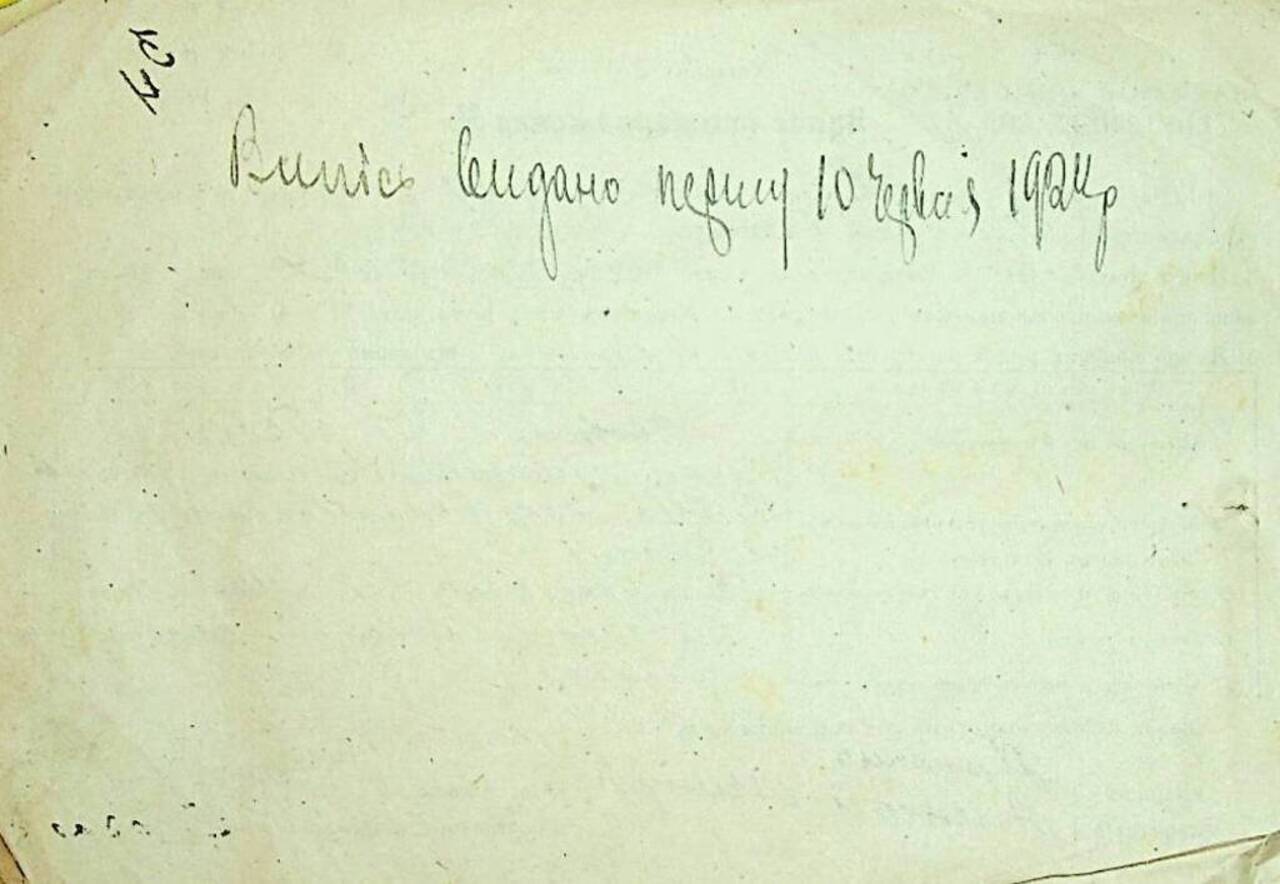 Випіс видано першу 10 Червня 1924р